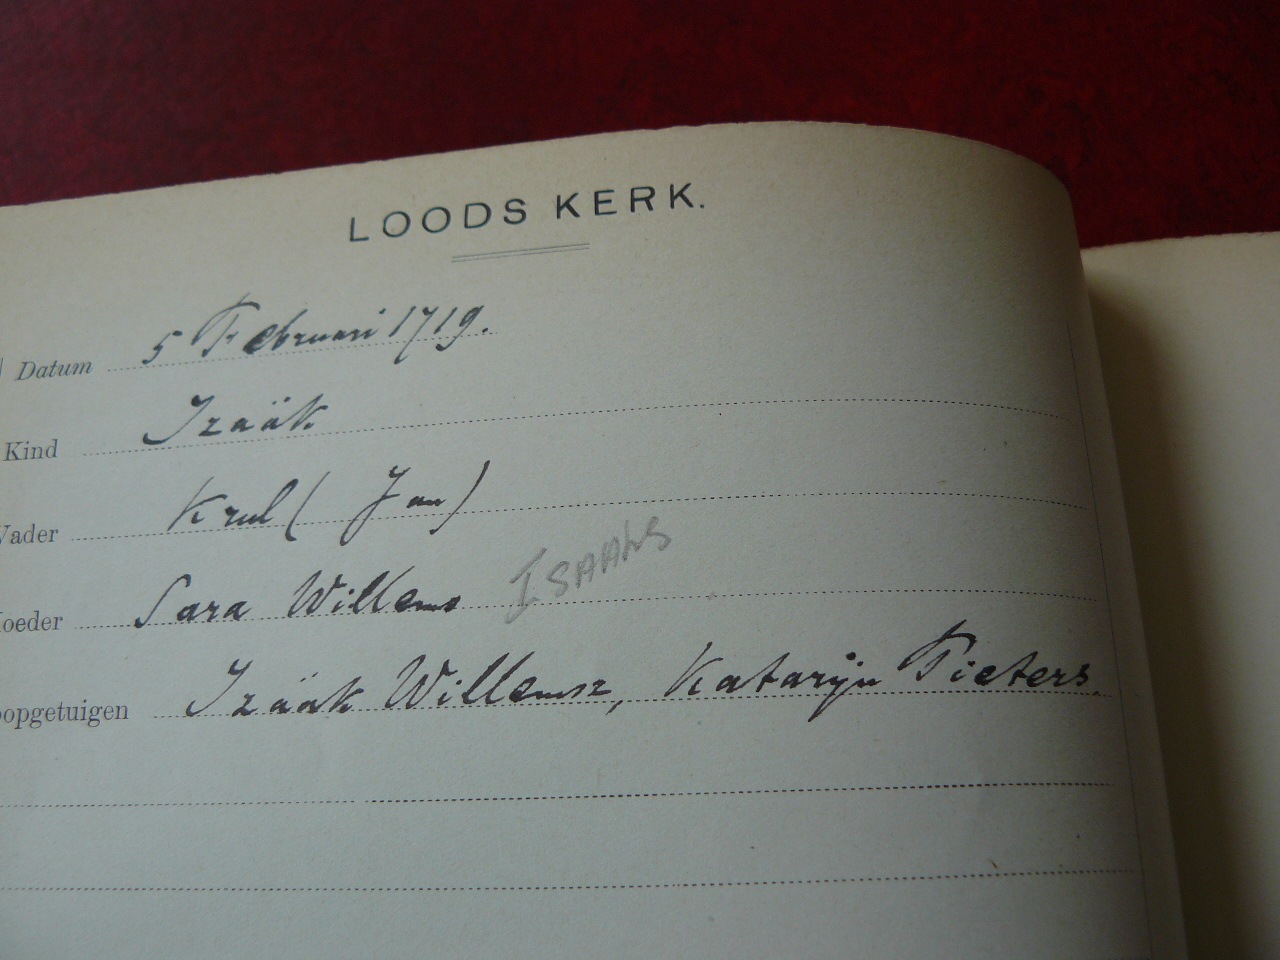 LOODS KERK.
Datum 5 Februari 1719.
Kind Izaäk
Vader Krul (Jan)
Moeder Sara Willems ISAAKS
oopgetuigen Izaäk Willemsz, Katarijn Pieters.